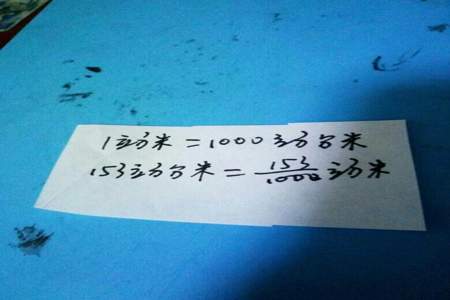 1立方米=1000立方分米
153立方分米=153/1000立方米